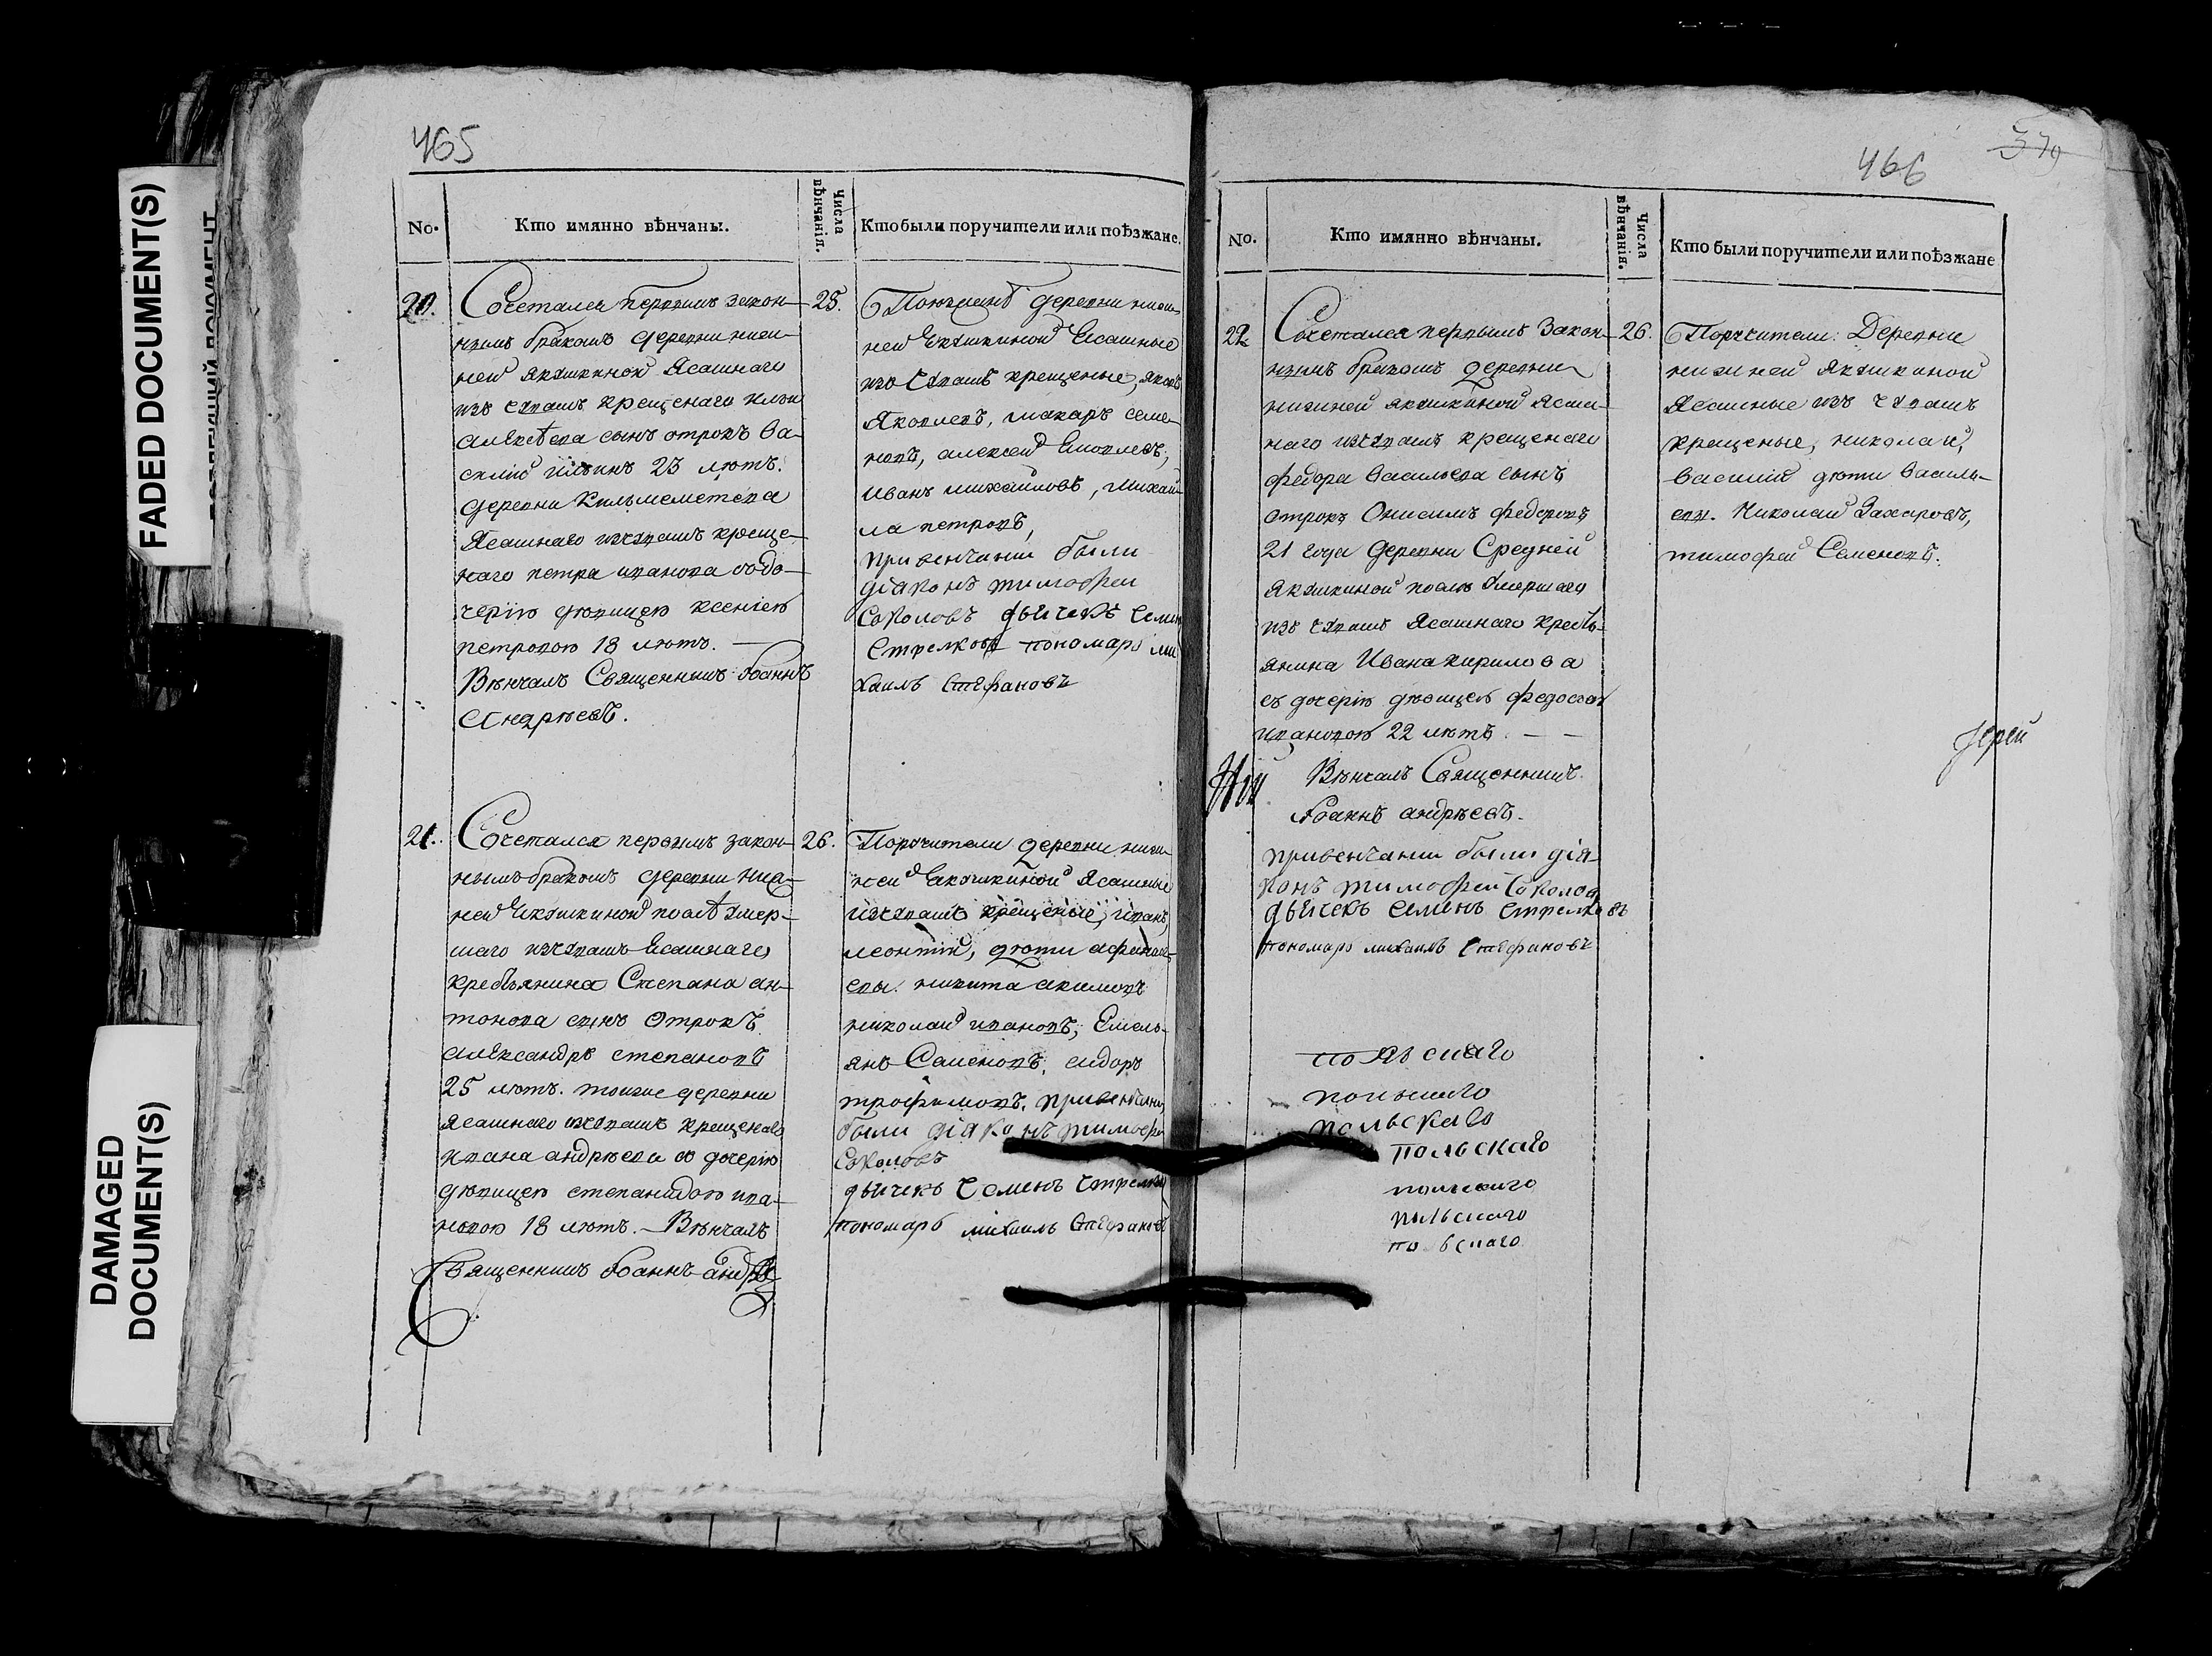 FADED DOCUMENT(S)
DAMAGED
DOCUMENT(S)
465
No.
Кто имянно вѣнчаны.
Числа
вѣнчанія.
Кто были поручители или поѣзжане.
20.
Сочетался первымъ закон-
нымъ бракомъ деревни ниж-
ней Якушкиной Ясашнаго
изъ Чувашъ крещенаго Ильи
Алексѣева сынъ отрокъ Ва-
силій Ильинъ 23 лѣтъ.
деревни Кильмеметева
Ясашнаго изъ Чувашъ креще-
наго петра иванова со до-
черію дѣвицею ксеніею
петровою 18 лѣтъ. —
Вѣнчалъ Священникъ Іоаннъ
Андрѣевъ.
25.
деревни ниж-
ней Екушкиной Есашные
изъ Чувашъ крещеные, яковъ
Яковлевъ, макаръ семе-
новъ, алексей
Иванъ михайловъ, Михай-
ла петровъ,
при венчании были
діаконъ тимофеи
Соколовъ дьячекъ Семен
Стрелковъ пономарь ми
хаилъ Стефановъ
21.
Сочетался первымъ закон-
нымъ бракомъ деревни ниж-
ней Екушкиной послѣ умер-
шаго изъ Чувашъ Есашнаго
крестьянина Степана ан-
тонова сынъ Отрокъ
Александръ степановъ
25 лѣтъ. тоиже деревни
Ясашнаго изъ Чувашъ крещенаго
ивана андрѣева со дочерію
дѣвицею степанидою ива-
новою 18 лѣтъ. — Вѣнчалъ
Священникъ Іоаннъ андрѣ
26.
Поручители деревни ниж-
ней Екушкиной Ясашные
изъ Чувашъ крещеные, иванъ,
леонтій, дѣти афанась-
евы. никита акимовъ
николай ивановъ, Емель-
янъ Семеновъ, сидоръ
трофимовъ. при венчании
были діаконъ тимофе
Соколовъ
дьячекъ Семенъ Стрелков
пономарь михаилъ Стефановъ
466
379
No.
Кто имянно вѣнчаны.
Числа
вѣнчанія.
Кто были поручители или поѣзжане
22
Сочетался первымъ Закон-
нымъ бракомъ деревни
нижней якушкиной Ясаш-
наго изъ Чувашъ крещенаго
федора Васильева сынъ
отрокъ Онисимъ федоровъ
21 года деревни Средней
Якушкиной послѣ Умершаго
изъ Чувашъ Ясашнаго кресть-
янина Ивана кирилова
съ дочерію дѣвицею федосьею
ивановою 22 лѣтъ. — —
Вѣнчалъ Священникъ
Іоаннъ андрѣевъ.
при венчании были діа-
конъ тимофей Соколов
дьячекъ Семенъ Стрелковъ
пономарь михаилъ Стефановъ
26.
Поручители: Деревни
нижней Якушкиной
Ясашные изъ Чувашъ
крещеные, николай,
василий дѣти Василь-
евы. Николай Захаровъ,
тимофей Семеновъ.
Іерей
польскаго
польскаго